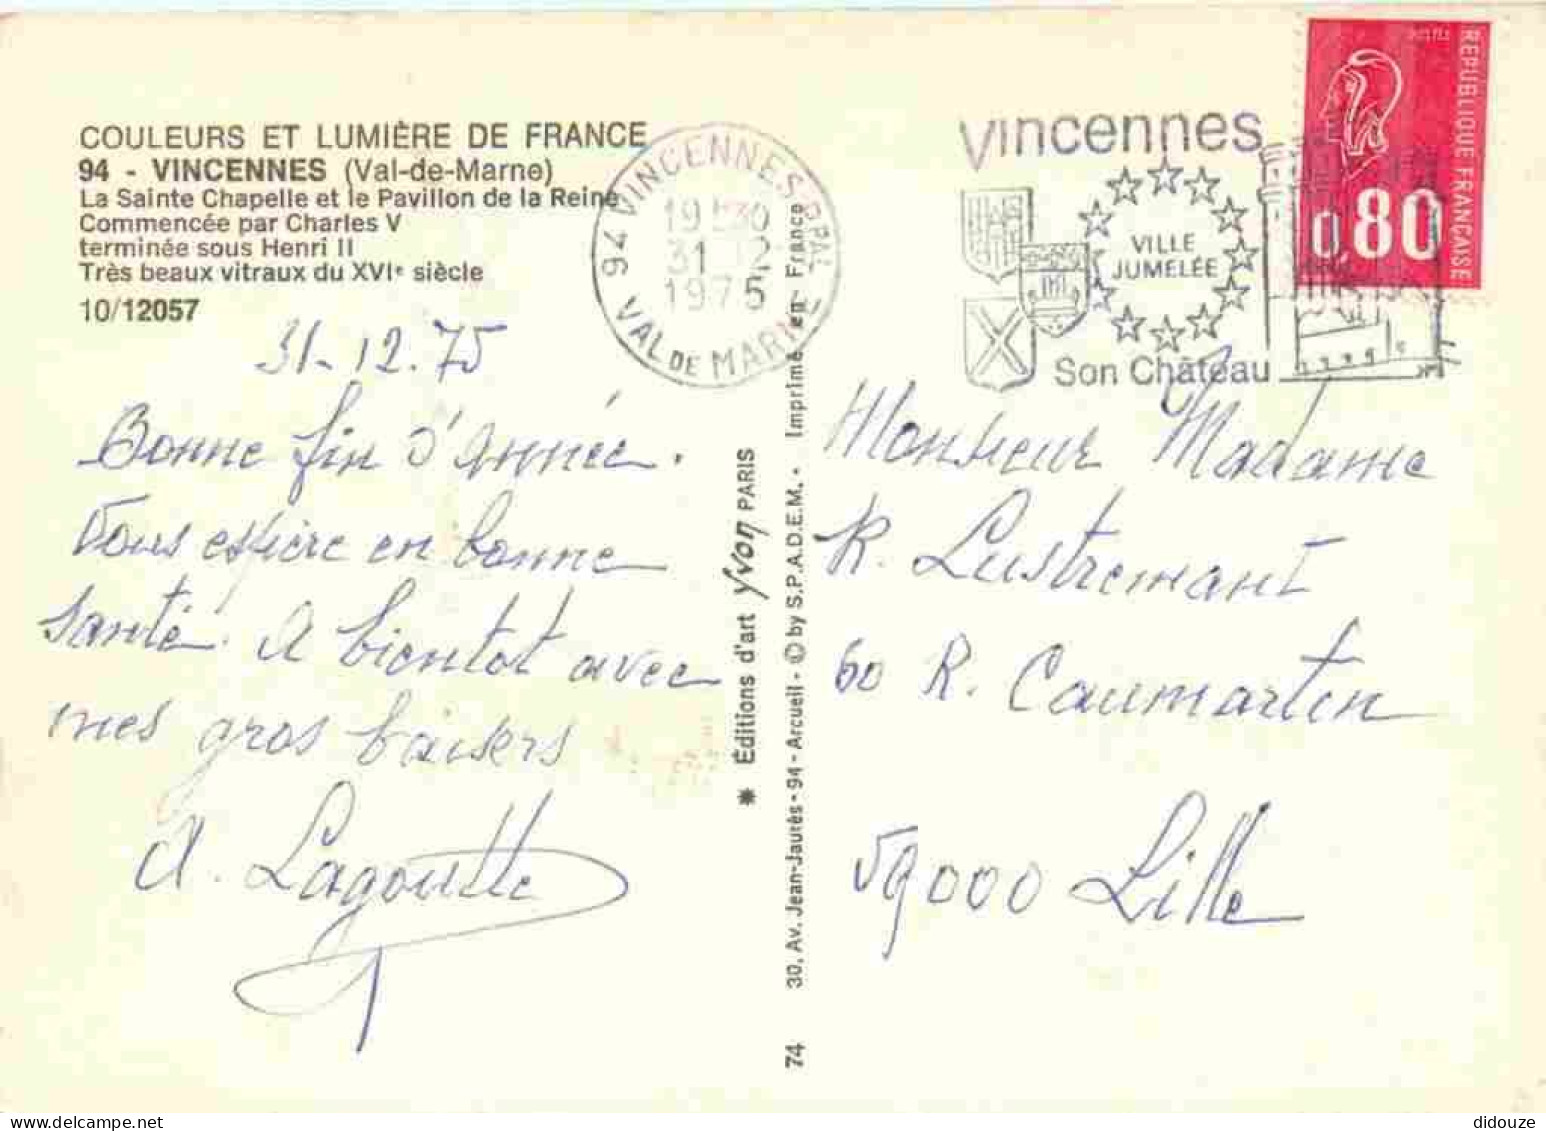 COULEURS ET LUMIÈRE DE FRANCE
94 - VINCENNES (Val-de-Marne)
La Sainte Chapelle et le Pavillon de la Reine
Commencée par Charles V
terminée sous Henri II
Très beaux vitraux du XVIe siècle
10/12057
31-12.75
Bonne fin d'Année.
Vous espère en bonne
santé. A bientot avec
mes gros baisers
A. Lagoutte
94 VINCENNES PPAL
19 30
31 12
1975
VAL DE MARNE
Vincennes
VILLE
JUMELÉE
Son Château
POSTES
RÉPUBLIQUE FRANÇAISE
0,80
✷ Éditions d'art Yvon PARIS
74 30, Av. Jean-Jaurès - 94 - Arcueil - © by S.P.A.D.E.M. - Imprimé en France
Monsieur Madame
R. Lustremant
60 R. Caumartin
59000 Lille
didouze